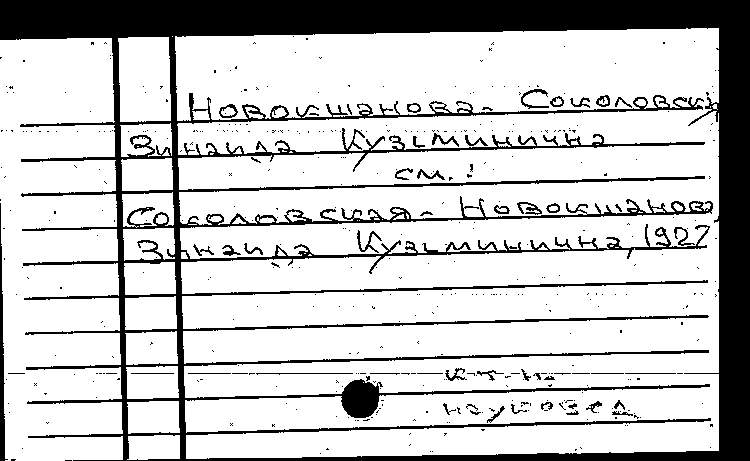 Новокшанова-Соколовская
Зинаида Кузьминична
см.:
Соколовская-Новокшанова
Зинаида Кузьминична, 1927
к.т.н.
науковед